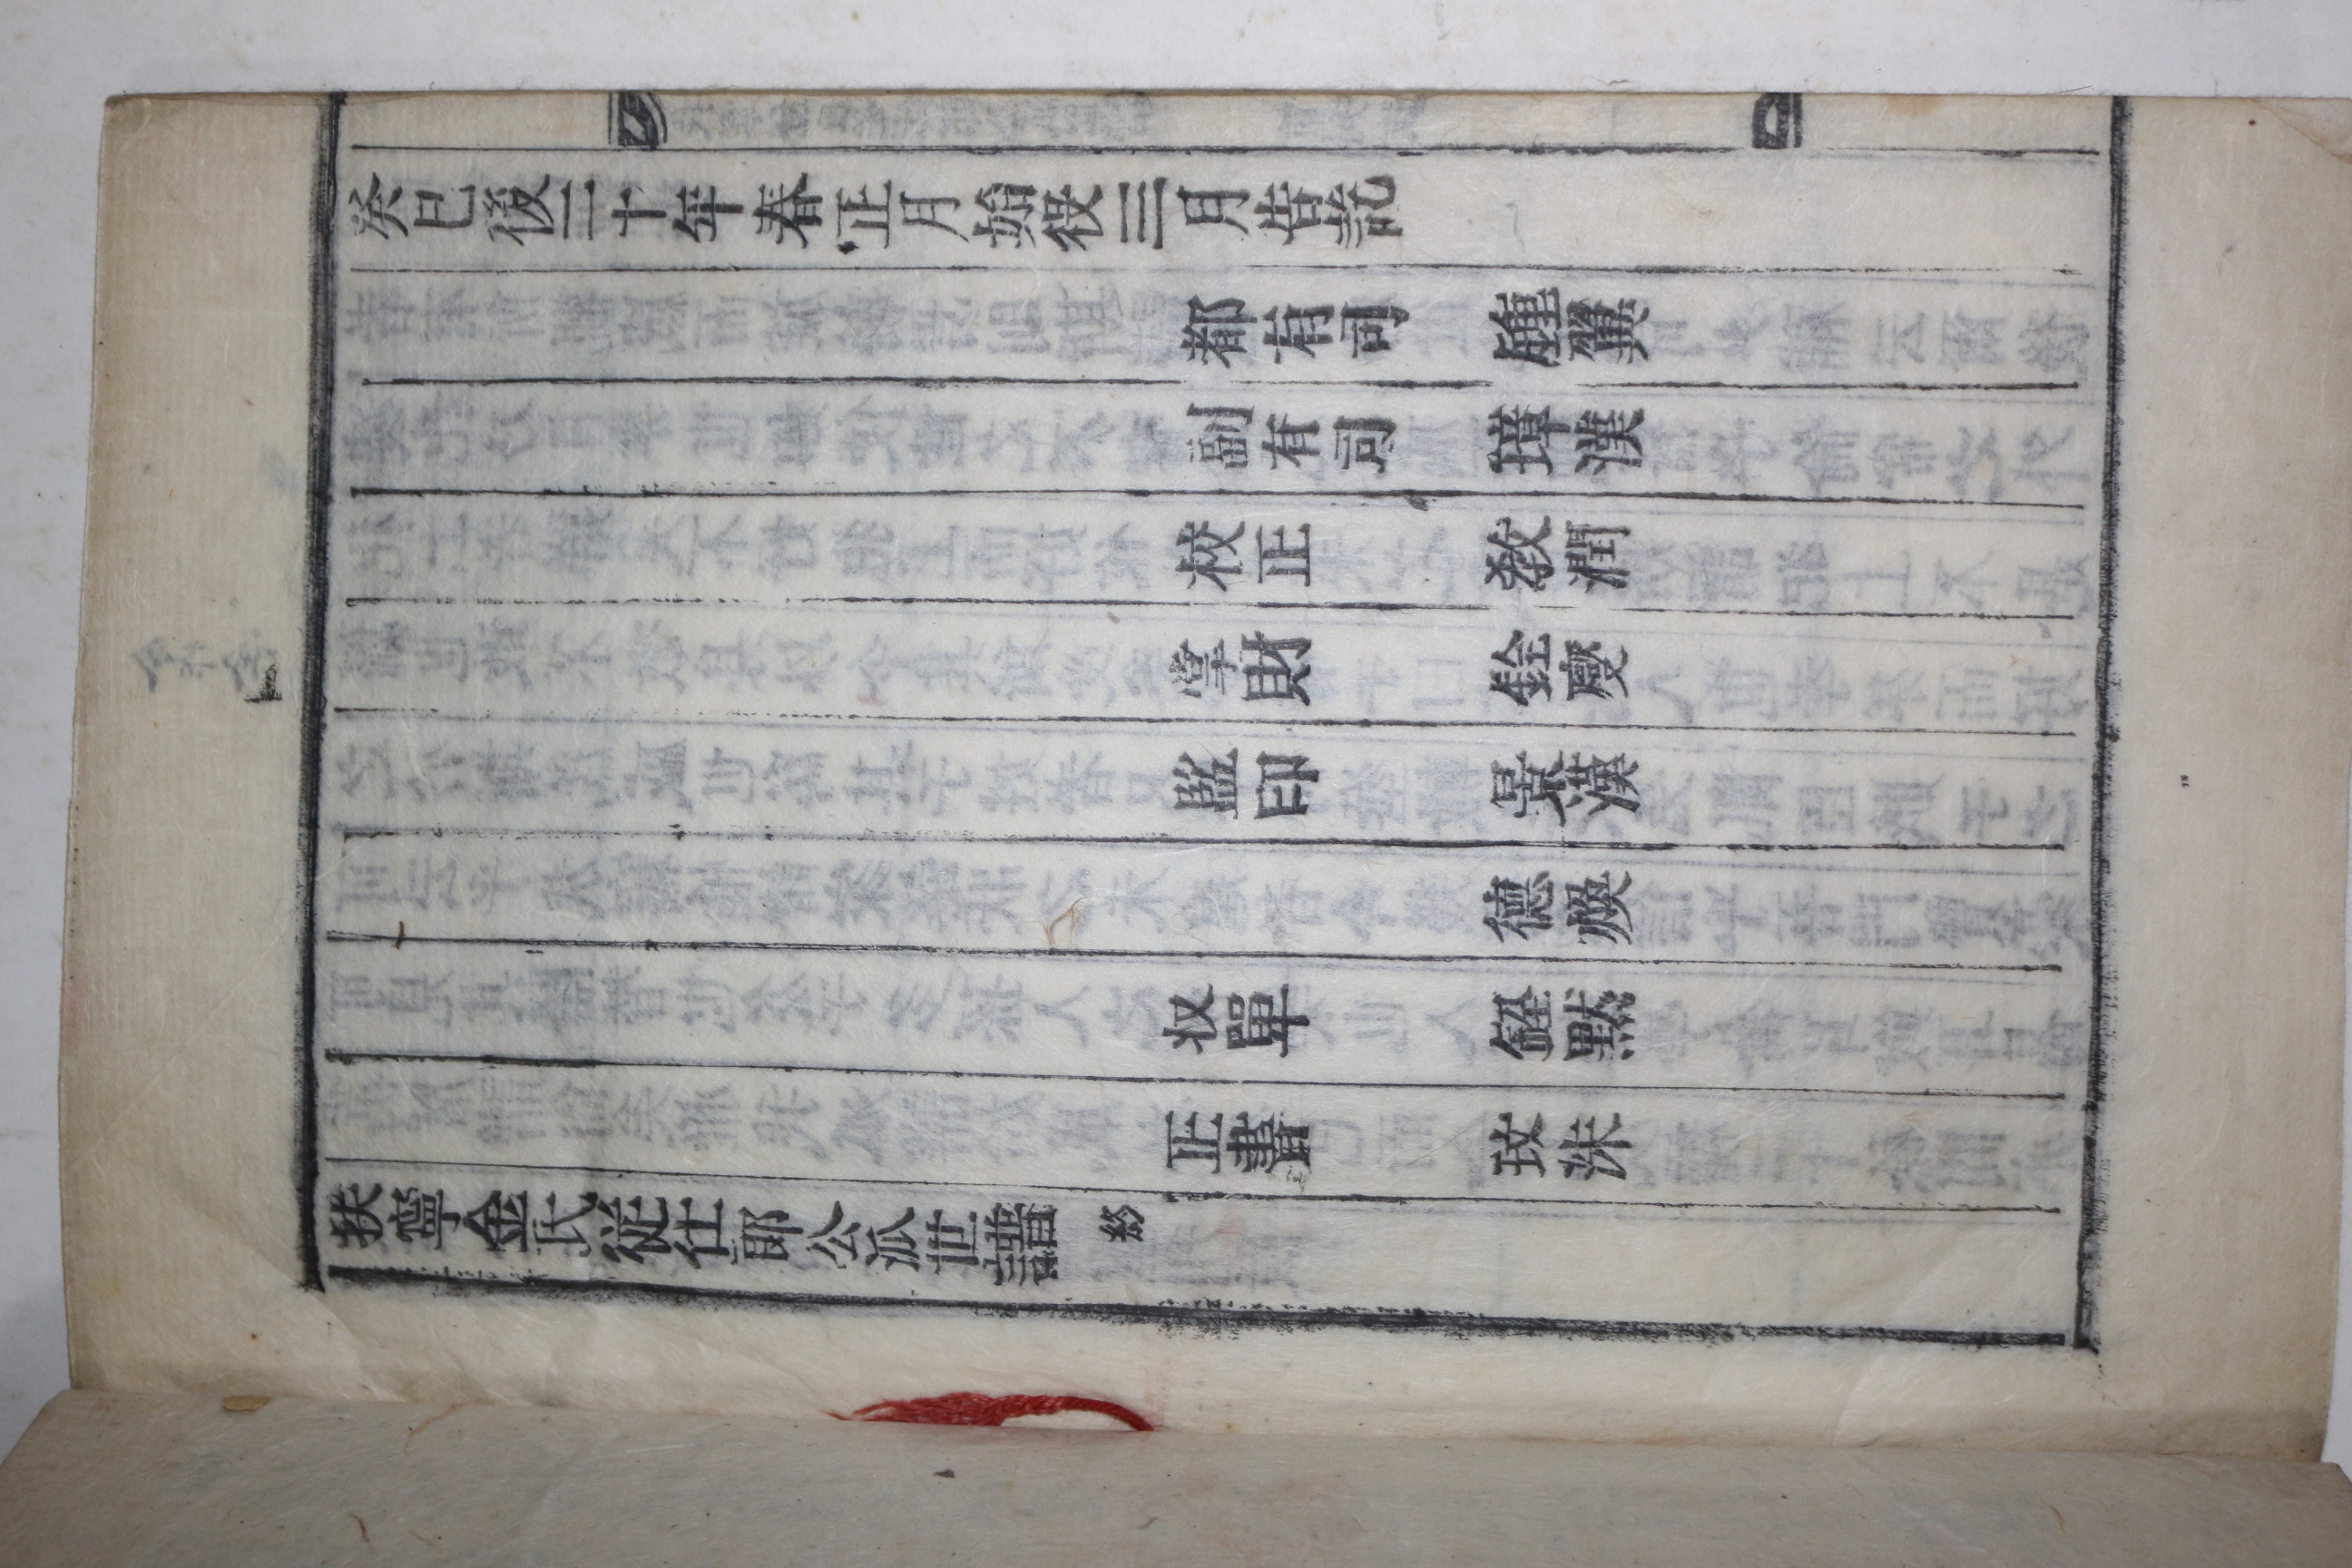 癸巳後二十年春正月始役三月告訖
都有司 鍾翼
副有司 璋漢
校正 敎潤
掌財 銓燮
監印 景漢
德煥
収單 鋞默
正書 玟洙
扶寧金氏從仕郎公派世譜 終